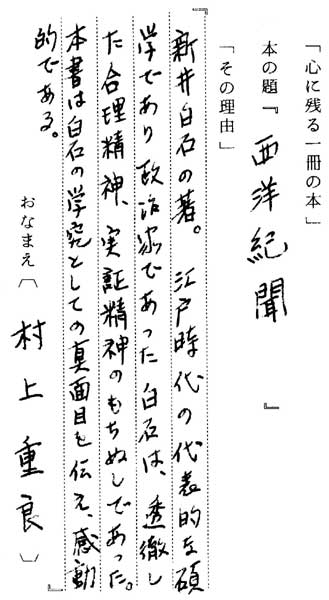 「心に残る一冊の本」
本の題『西洋紀聞』
「その理由」
新井白石の著。江戸時代の代表的な碩
学であり政治家であった白石は、透徹し
た合理精神、実証精神のもちぬしであった。
本書は白石の学究としての真面目を伝え、感動
的である。
おなまえ〔村上重良〕